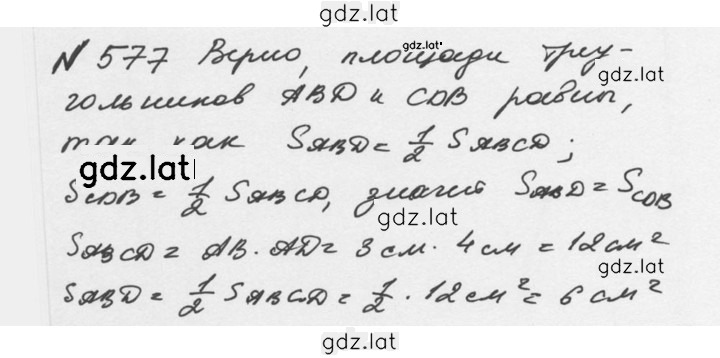 gdz.lat
N 577 Верно, площади треу-
gdz.lat
gdz.lat
гольников ABD и CDB равны,
так как SABD = 1/2 SABCD;
gdz.lat
SCDB = 1/2 SABCD, значит SABD = SCDB
gdz.lat
SABCD = AB · AD = 3 см · 4 см = 12 см²
gdz.lat
SABD = 1/2 SABCD = 1/2 · 12 см² = 6 см²
gdz.lat